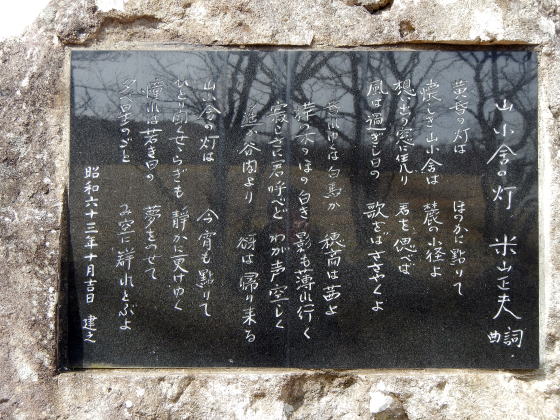 山小舎の灯 米山正夫 詞曲
黄昏の灯は ほのかに點りて
懐しき山小舎は 麓の小径よ
想い出の窓に凭り 君を偲べば
風は過ぎし日の 歌をばささやくよ
暮れ行くは白馬か 穂高は茜よ
樺の木のほの白き 影も薄れ行く
寂しさに君呼べど わが声空しく
遥か谷間より 谺は帰り来る
山小舎の灯は 今宵も點りて
ひとり聞くせゝらぎも 静かに更けゆく
憧れは若き日の 夢をのせて
夕星のごと み空に群れとぶよ
昭和六十三年十月吉日 建之